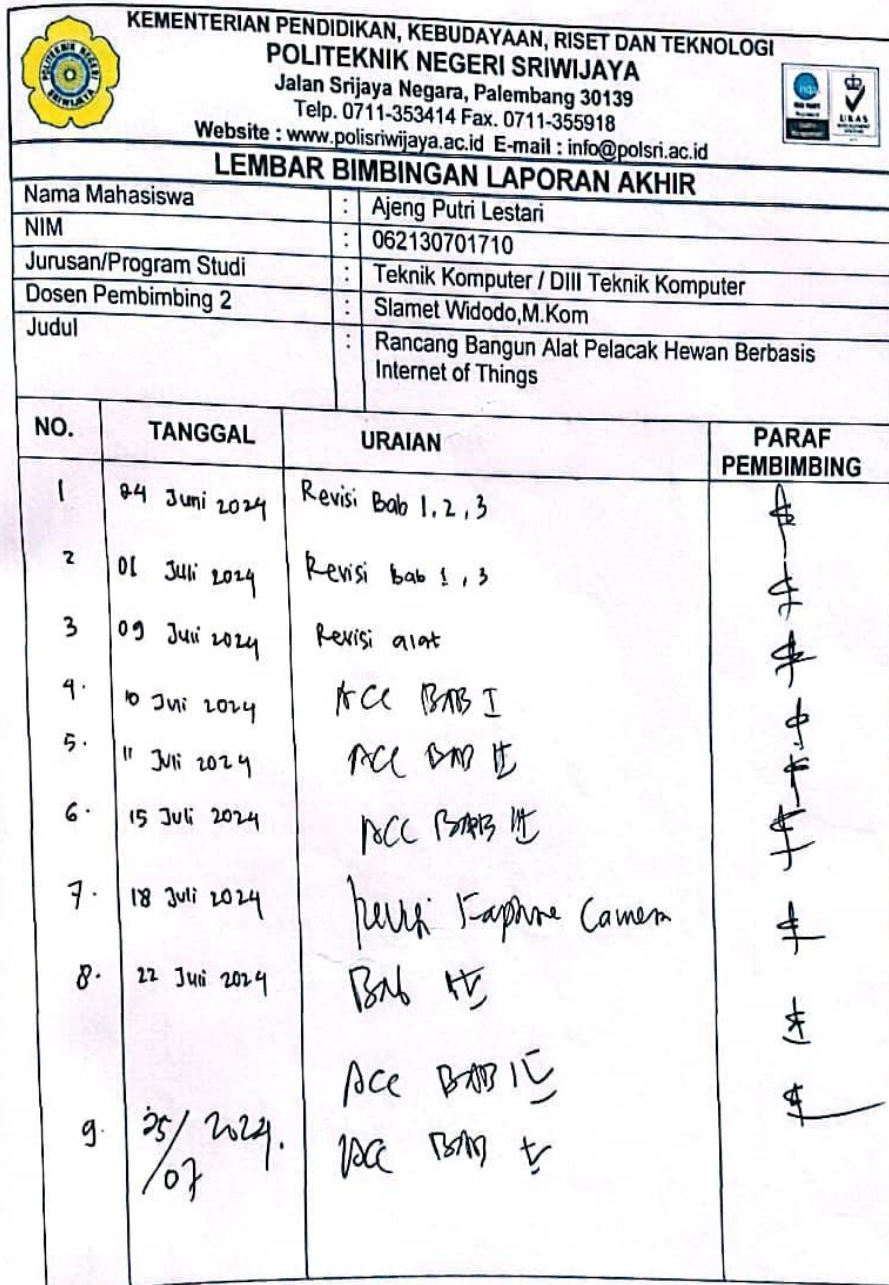 KEMENTERIAN PENDIDIKAN, KEBUDAYAAN, RISET DAN TEKNOLOGI
POLITEKNIK NEGERI SRIWIJAYA
Jalan Srijaya Negara, Palembang 30139
Telp. 0711-353414 Fax. 0711-355918
Website : www.polisriwijaya.ac.id E-mail : info@polsri.ac.id
POLITEKNIK NEGERI SRIWIJAYA
UKAS
LEMBAR BIMBINGAN LAPORAN AKHIR
Nama Mahasiswa : Ajeng Putri Lestari
NIM : 062130701710
Jurusan/Program Studi : Teknik Komputer / DIII Teknik Komputer
Dosen Pembimbing 2 : Slamet Widodo,M.Kom
Judul : Rancang Bangun Alat Pelacak Hewan Berbasis
Internet of Things
NO. TANGGAL URAIAN PARAF
PEMBIMBING
1 24 Juni 2024 Revisi Bab 1, 2, 3
2 01 Juli 2024 Revisi bab 1, 3
3 09 Juli 2024 Revisi alat
4. 10 Juli 2024 ACC BAB I
5. 11 Juli 2024 ACC BAB II
6. 15 Juli 2024 ACC BAB III
7. 18 Juli 2024 Camera
8. 22 Juli 2024 Bab IV
ACC BAB IV
9. 25/07 2024. ACC BAB V